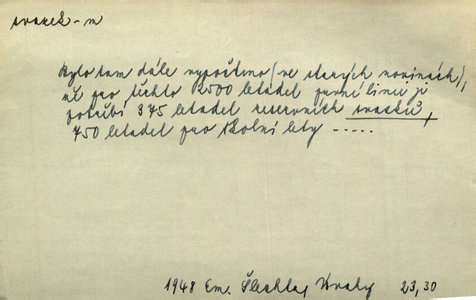 svazek-m
Bylo tam dále vypočteno (ve starých novinách),
že pro těchto 2500 letadel první linie je
potřebí 375 letadel reservních svazků,
750 letadel pro školní lety .....
1948 Em. Šlechta, 23,30